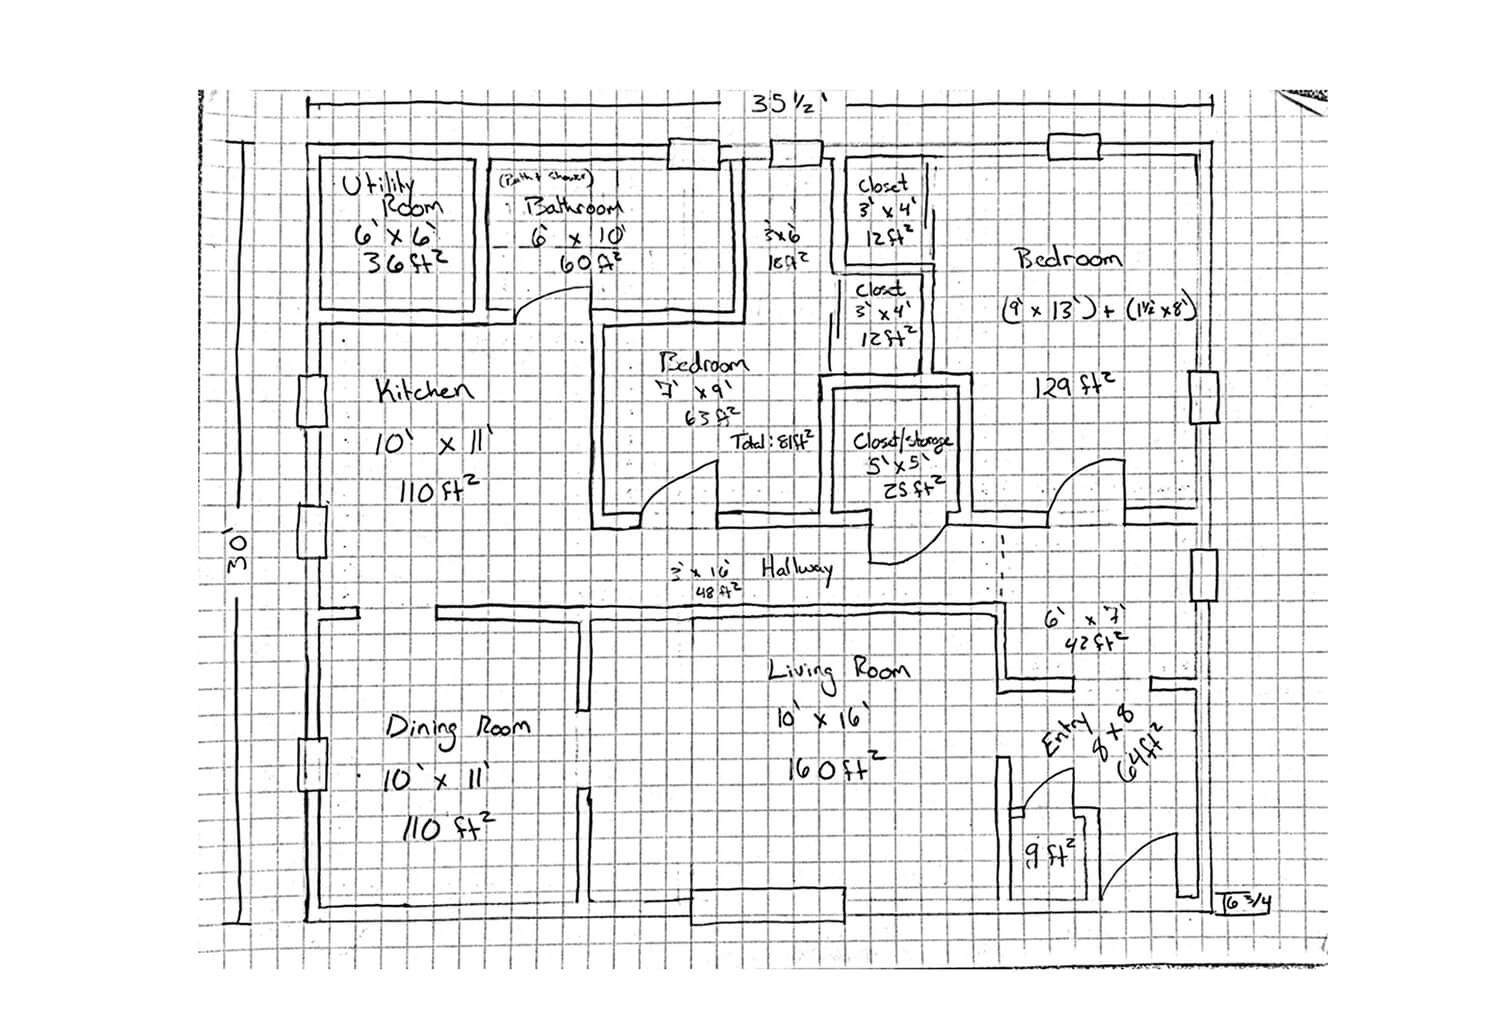 35 1/2'
30'
Utility
Room
6' x 6'
36 ft²
(Bath + Shower)
Bathroom
6' x 10'
60 ft²
3x6
18ft²
Closet
3' x 4'
12 ft²
Closet
3' x 4'
12 ft²
Bedroom
(9' x 13') + (1 1/2 x 8')
129 ft²
Kitchen
10' x 11'
110 ft²
Bedroom
7' x 9'
63 ft²
Total: 81ft²
Closet/storage
5' x 5'
25 ft²
3' x 16' Hallway
48 ft²
6' x 7'
42 ft²
Living Room
10' x 16'
160 ft²
Dining Room
10' x 11'
110 ft²
Entry
8 x 8
64 ft²
9 ft²
6 3/4